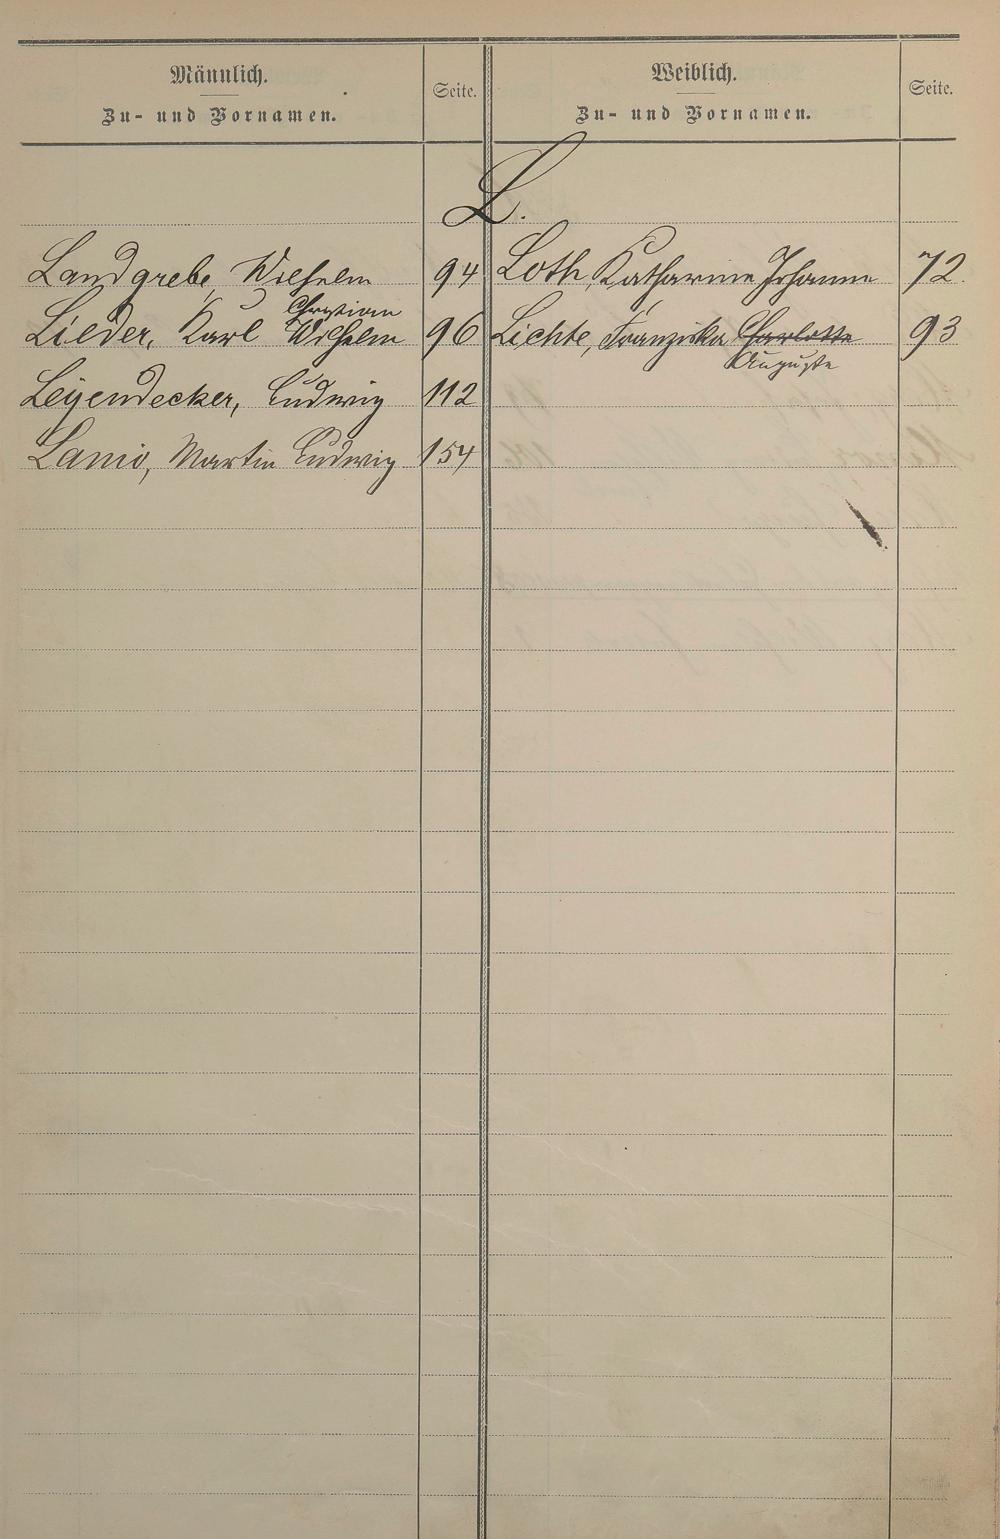 Männlich.
Zu- und Vornamen.
Seite.
Weiblich.
Zu- und Vornamen.
Seite.
L.
Landgrebe, Wilhelm 94
Christian
Lieder, Karl Wilhelm 96
Leyendecker, Ludwig 112
Lanio, Martin Ludwig 154
Loth, Katharine Johanne 72.
Lichte, Franziska Charlotte 93
Auguste